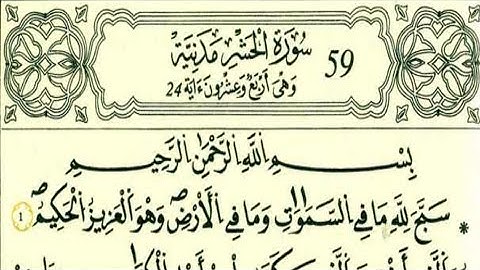 سُورَةُ الْحَشْرِ مَدَنِيَّةٌ 59
وَهْىَ أَرْبَعٌ وَعِشْرُونَ ءَايَةً 24
بِسْمِ اللَّهِ الرَّحْمَٰنِ الرَّحِيمِ
* سَبَّحَ لِلهِ مَا فِي السَّمَٰوَٰتِ وَمَا فِي الْأَرْضِ وَهْوَ الْعَزِيزُ الْحَكِيمُ 1